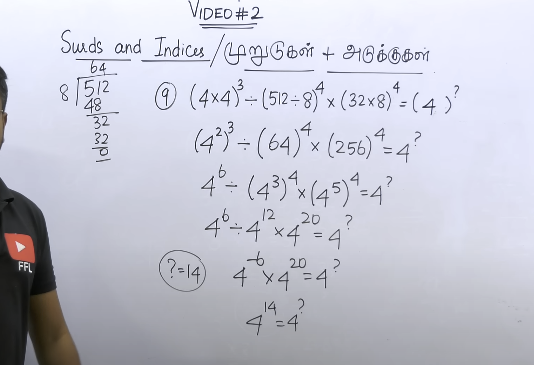 VIDEO # 2
Surds and Indices / முறுடுகள் + அடுக்குகள்
64
8 512
48
32
32
0
⑨ (4×4)³ ÷ (512÷8)⁴ × (32×8)⁴ = (4)^?
(4²)³ ÷ (64)⁴ × (256)⁴ = 4^?
4⁶ ÷ (4³)⁴ × (4⁵)⁴ = 4^?
4⁶ ÷ 4¹² × 4²⁰ = 4^?
? = 14
4⁻⁶ × 4²⁰ = 4^?
4¹⁴ = 4^?
FFL